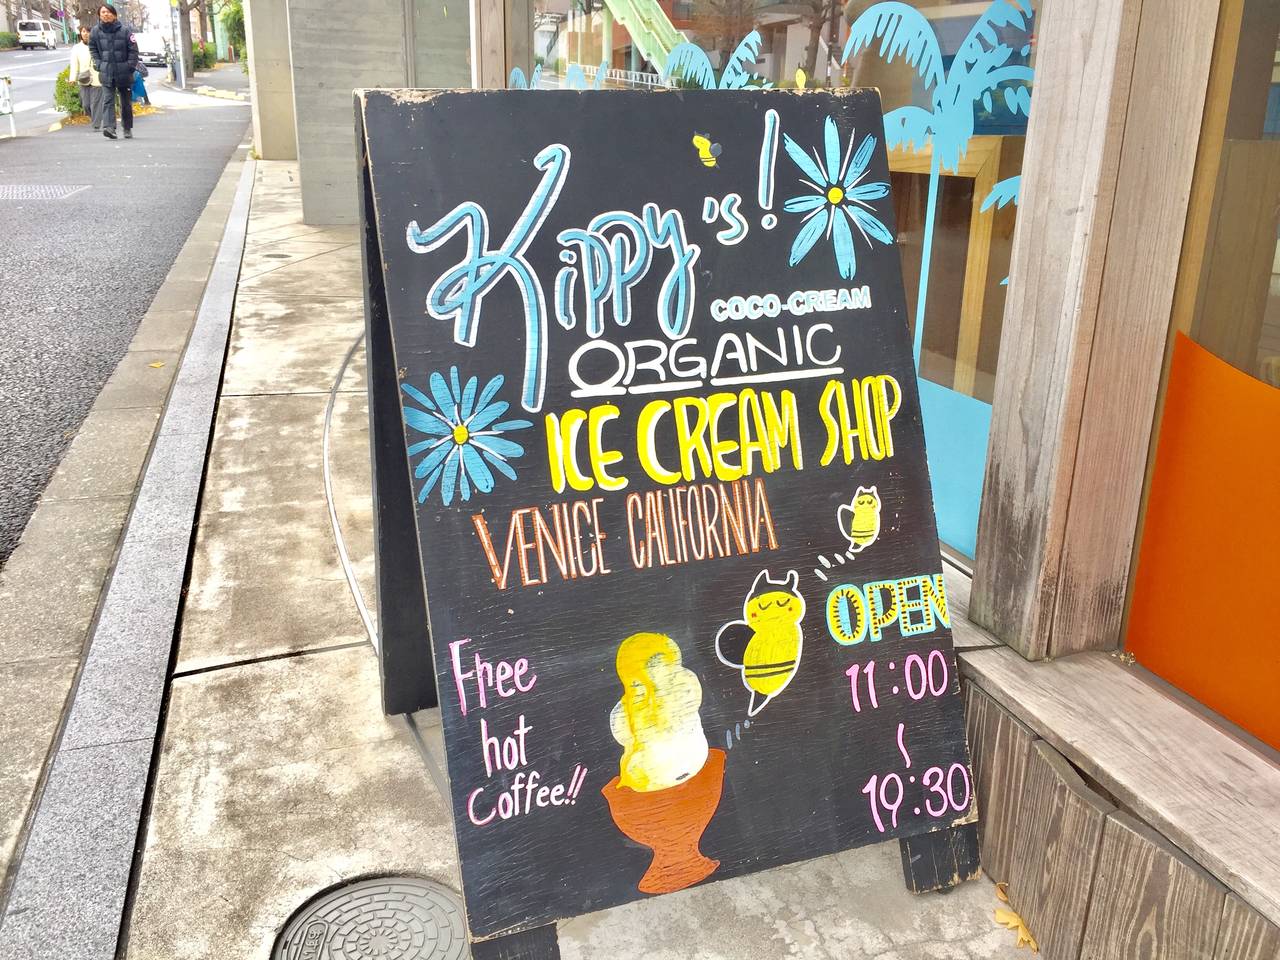 Kippy's!
COCO-CREAM
ORGANIC
ICE CREAM SHOP
VENICE CALIFORNIA
OPEN
11:00
~
19:30
Free
hot
coffee!!